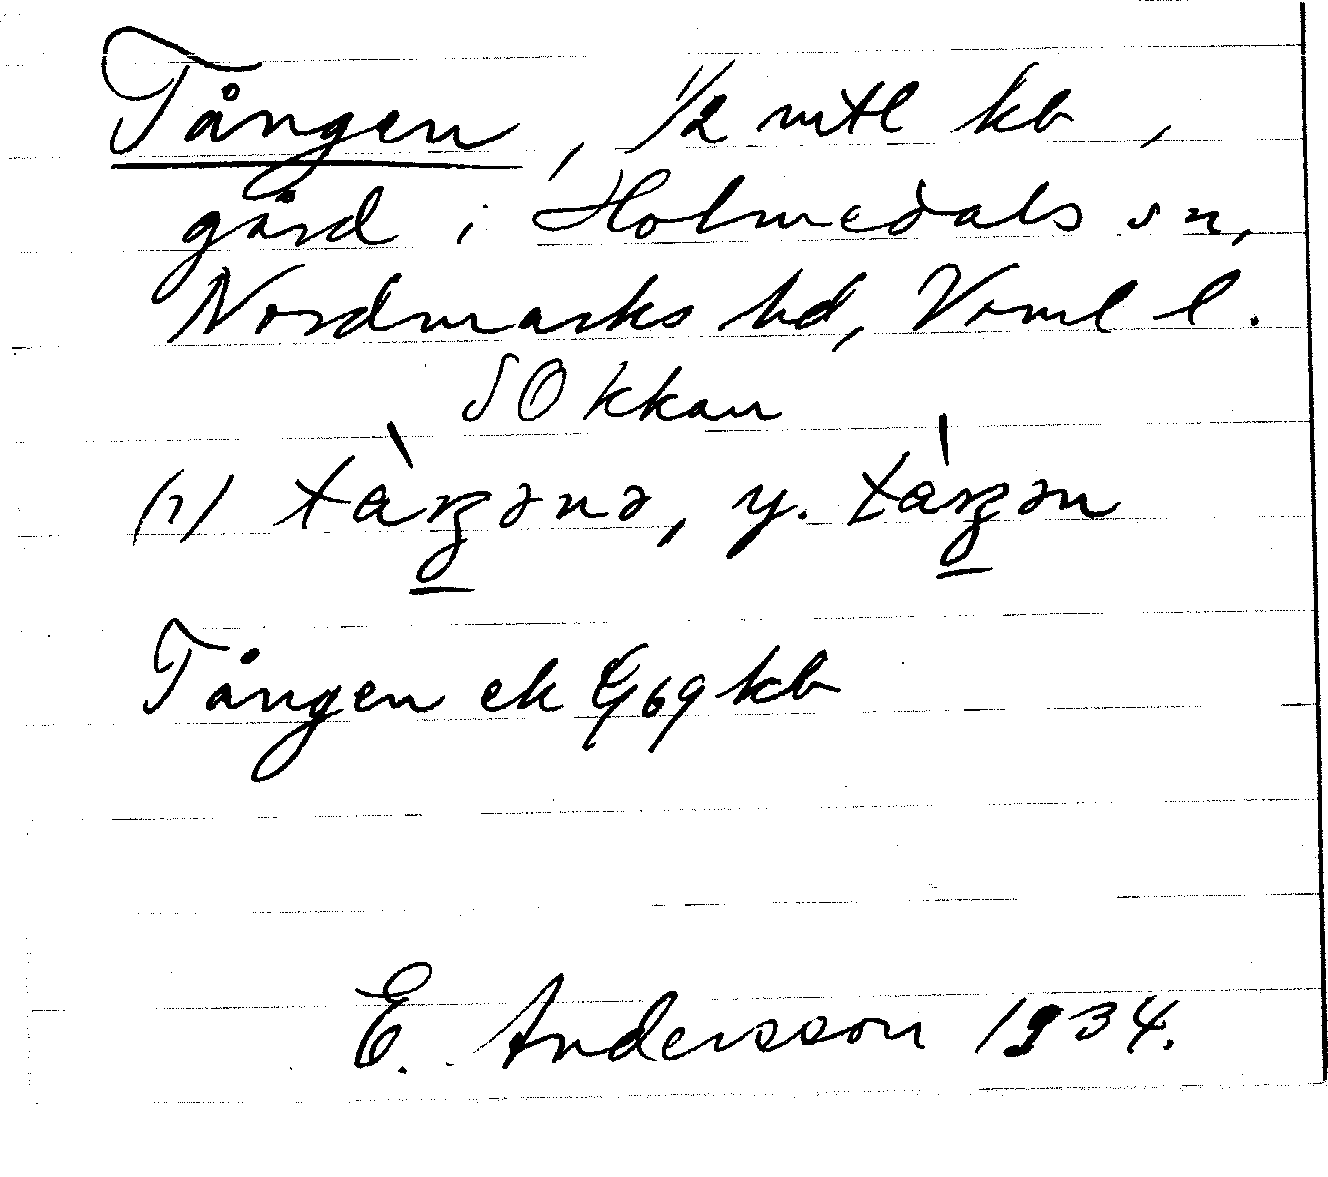 Tången, 1/2 mtl kb,
gård i Holmedals sn,
Nordmarks hd, Vrml l.
SO kkan
tàŋənə, y. tàŋən
Tången ek G 69 kb
E. Andersson 1934.